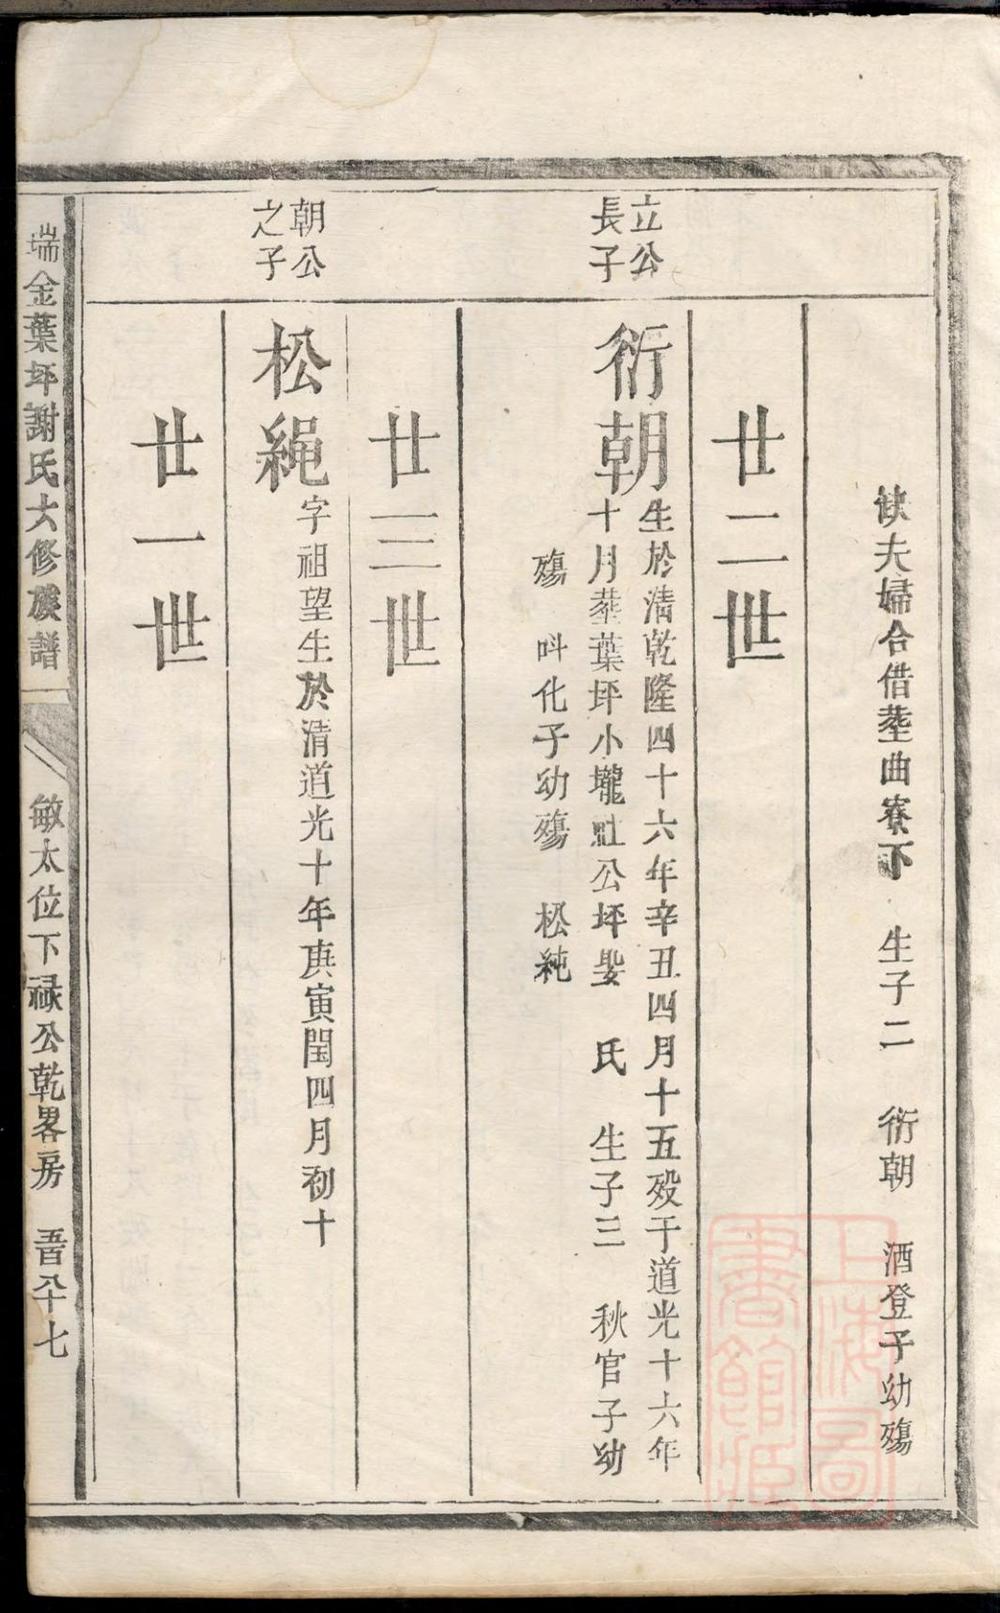 缺夫婦合借塟曲寮下　生子二　衍朝　酒登子幼殤
廿二世
立公
長子
衍朝
生於清乾隆四十六年辛丑四月十五殁于道光十六年
十月塟葉坪小壠㘵公坪娶　氏　生子三　秋官子幼
殤　呌化子幼殤　松純
廿三世
朝公
之子
松繩
字祖望生於清道光十年庚寅閏四月初十
廿一世
瑞金葉坪謝氏大修族譜
敏太位下祿公乾畧房　五百八十七
上海圖
書館藏